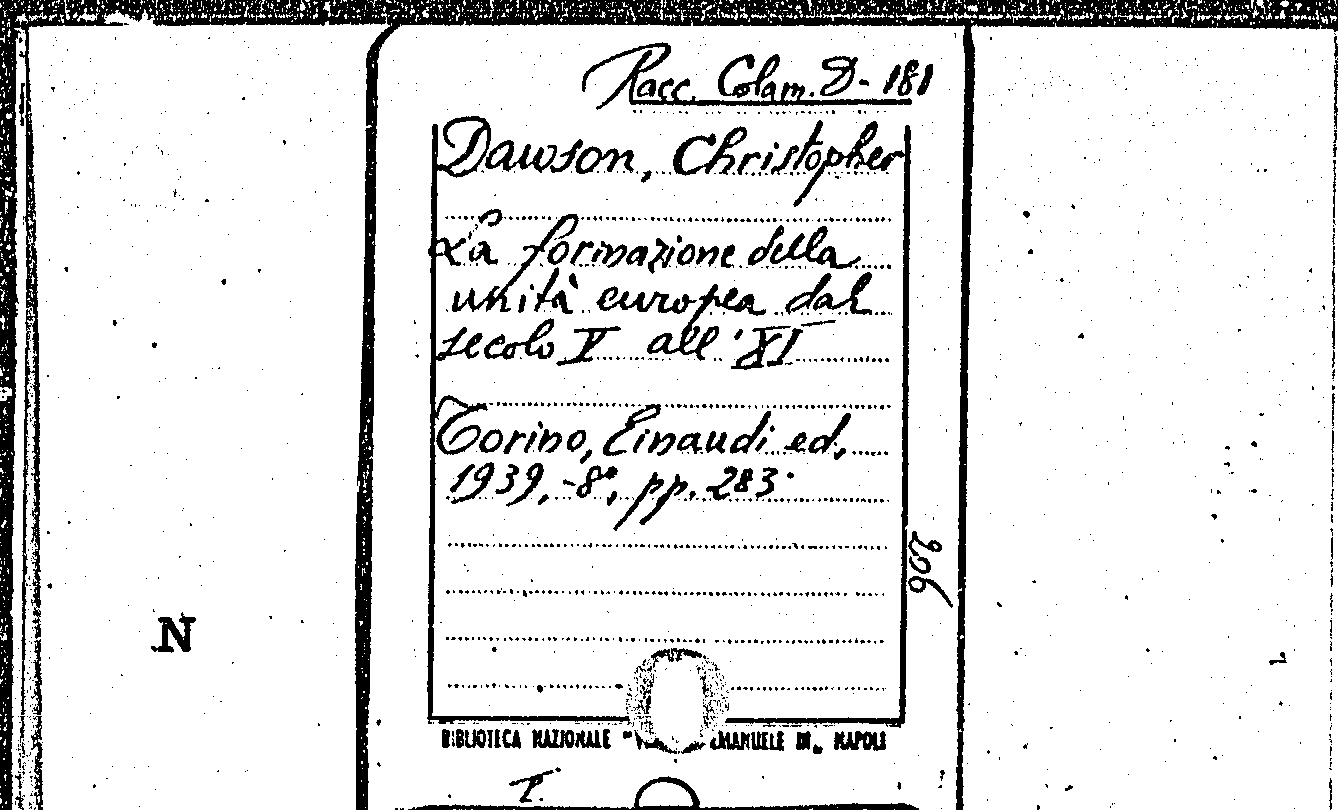 Racc. Colam. D-181
Dawson, Christopher
La formazione della
unità europea dal
secolo V all'XI
Torino, Einaudi ed,
1939,-8°, pp. 283.
206
N
BIBLIOTECA NAZIONALE EMANUELE III„ NAPOLI